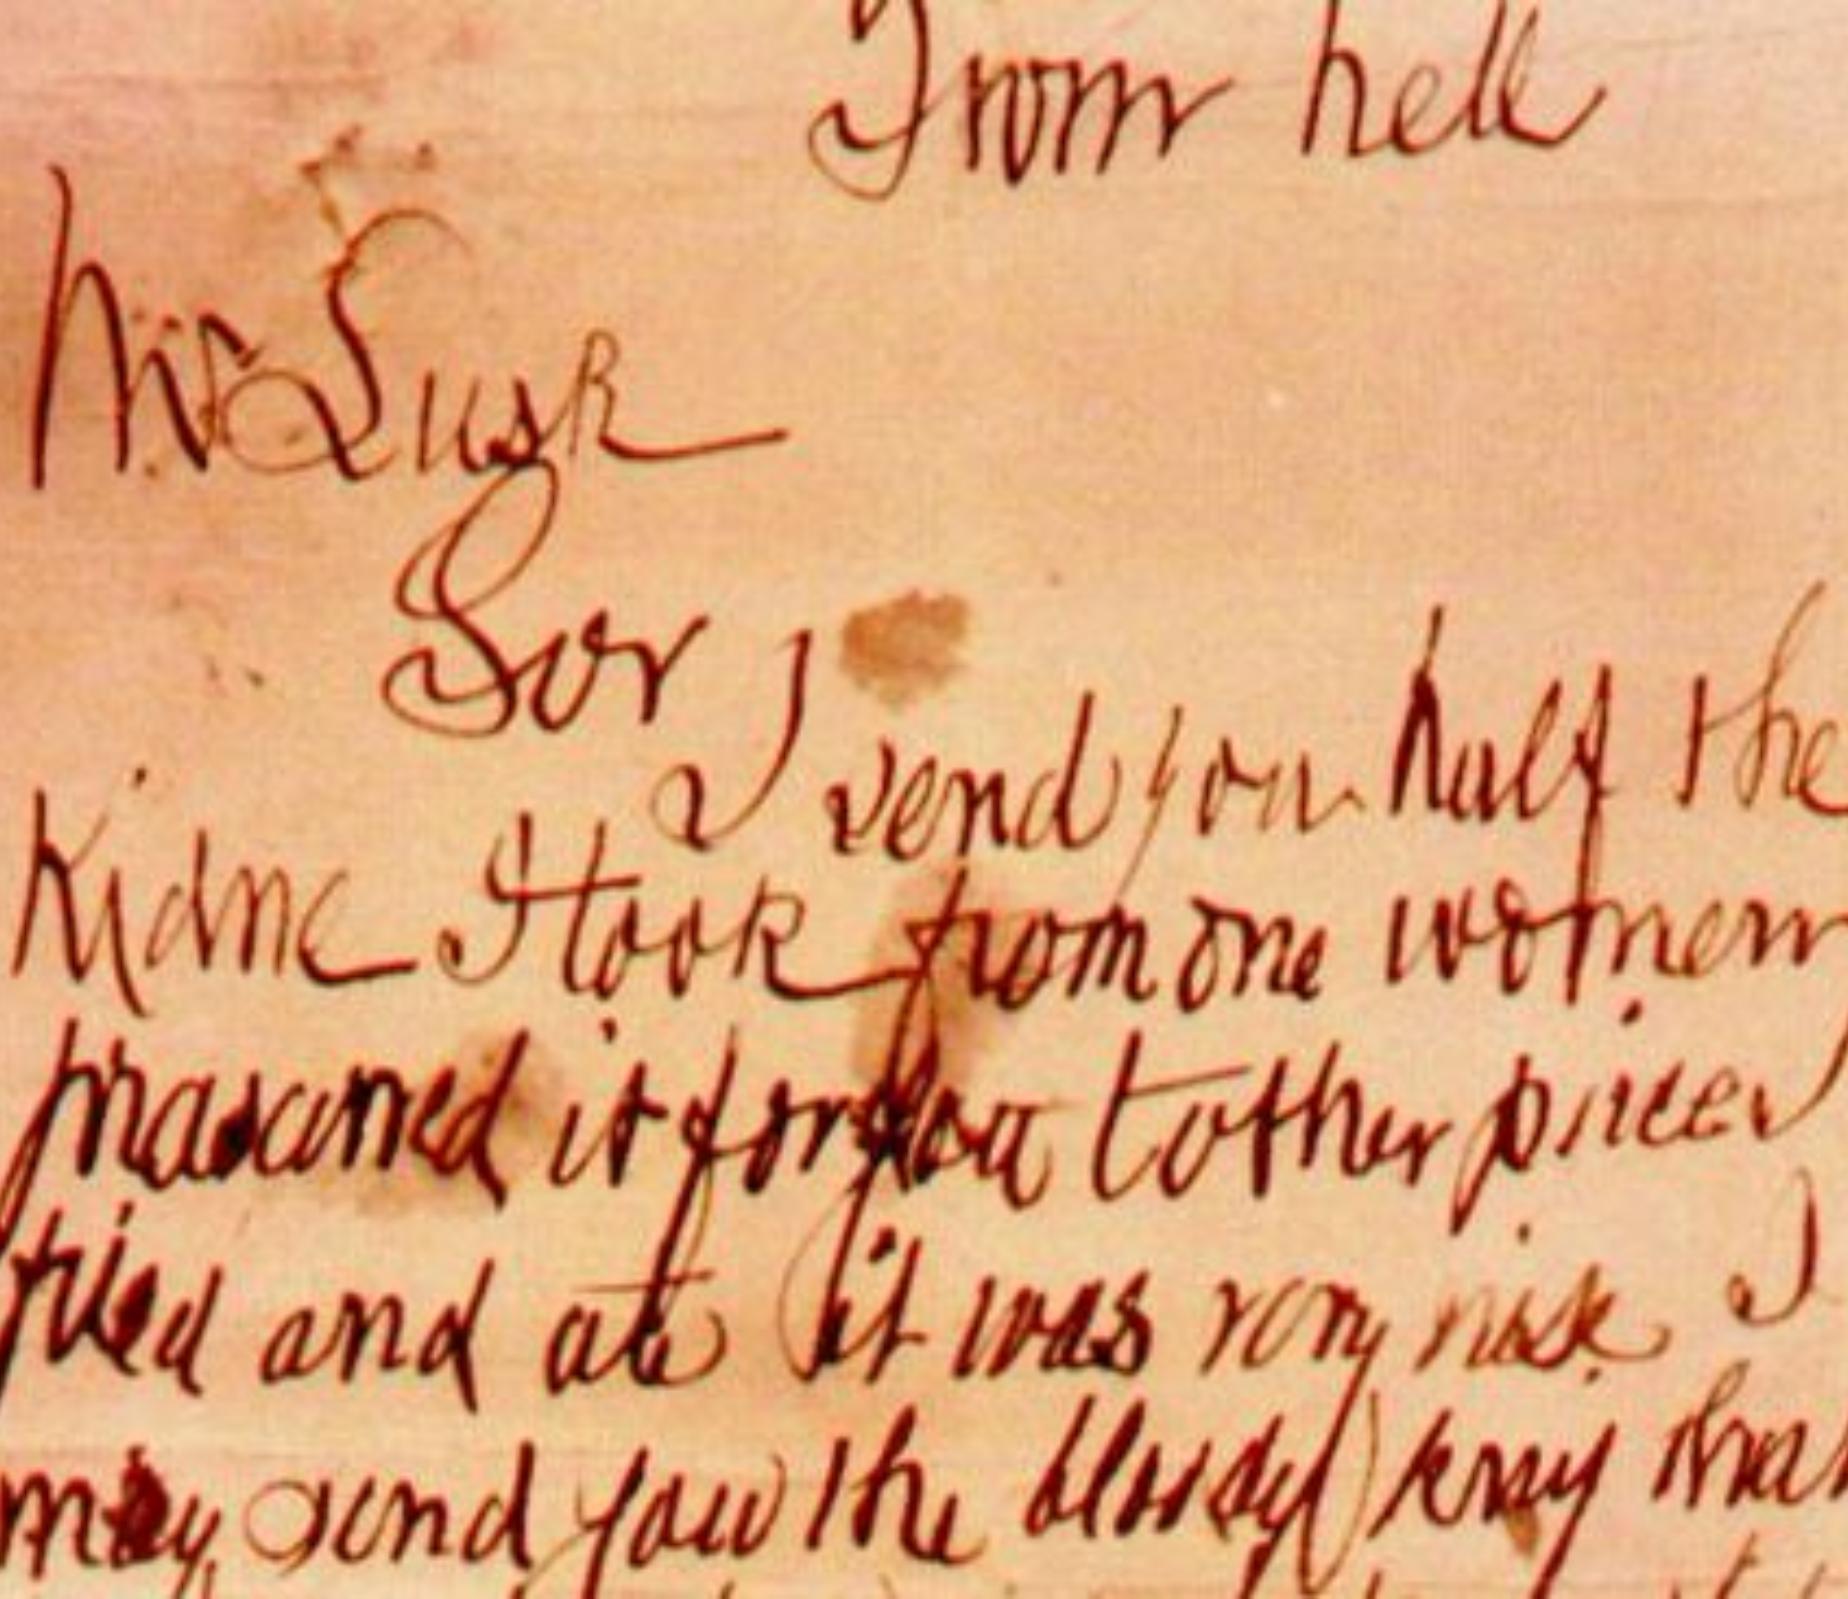 From hell
Mr Lusk
Sor
I send you half the
Kidne I took from one women
prasarved it for you tother piece I
fried and ate it was very nise I
may send you the bloody knif that